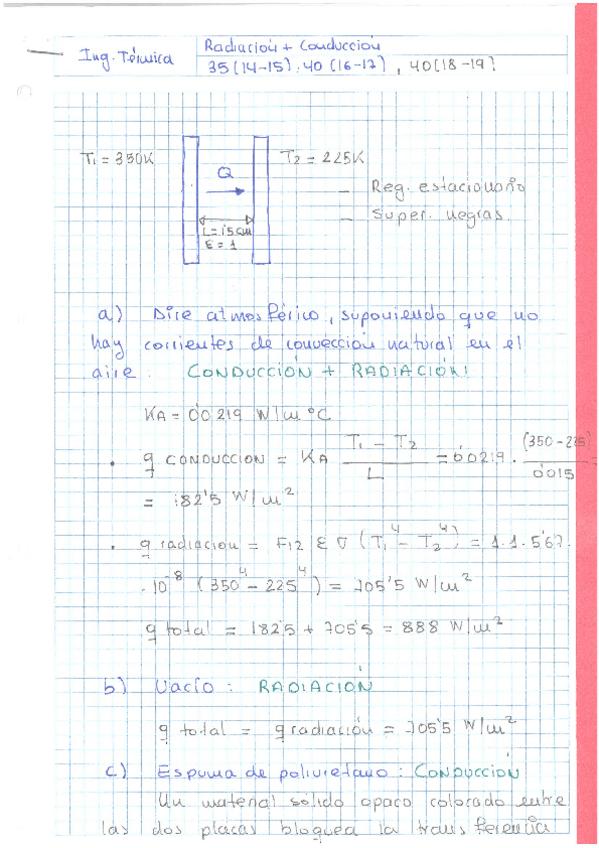 Ing. Térmica
Radiación + Conducción
35 (14-15), 40 (16-17), 40(18-19)
T1 = 350K
Q
T2 = 225K
L = 1'5 cm
ε = 1
- Reg. estacionario
- Super. negras.
a) Aire atmosférico, suponiendo que no
hay corrientes de convección natural en el
aire. CONDUCCIÓN + RADIACIÓN!
KA = 0'0219 W/m °C
· q CONDUCCION = KA (T1 - T2)/L = 0'0219 · (350-225)/0'015
= 182'5 W/m²
· q radiacion = F12 ε σ (T1⁴ - T2⁴) = 1·1·5'67·
·10⁻⁸ (350⁴ - 225⁴) = 705'5 W/m²
q total = 182'5 + 705'5 = 888 W/m²
b) Vacío: RADIACIÓN
q total = q radiación = 705'5 W/m²
c) Espuma de poliuretano: CONDUCCIÓN
Un material sólido opaco colocado entre
las dos placas bloquea la transferencia